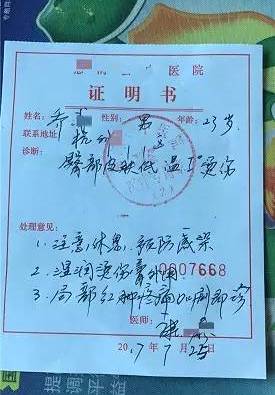 医院
证明书
姓名: 乔 性别: 男 年龄: 23岁
联系地址: 杭州
诊断:
臀部皮肤低温I°烫伤
处理意见:
1. 注意休息、预防感染
2. 湿润烫伤膏外用
0007668
3. 局部红肿疼痛加剧即诊
医师:
2017年7月25日